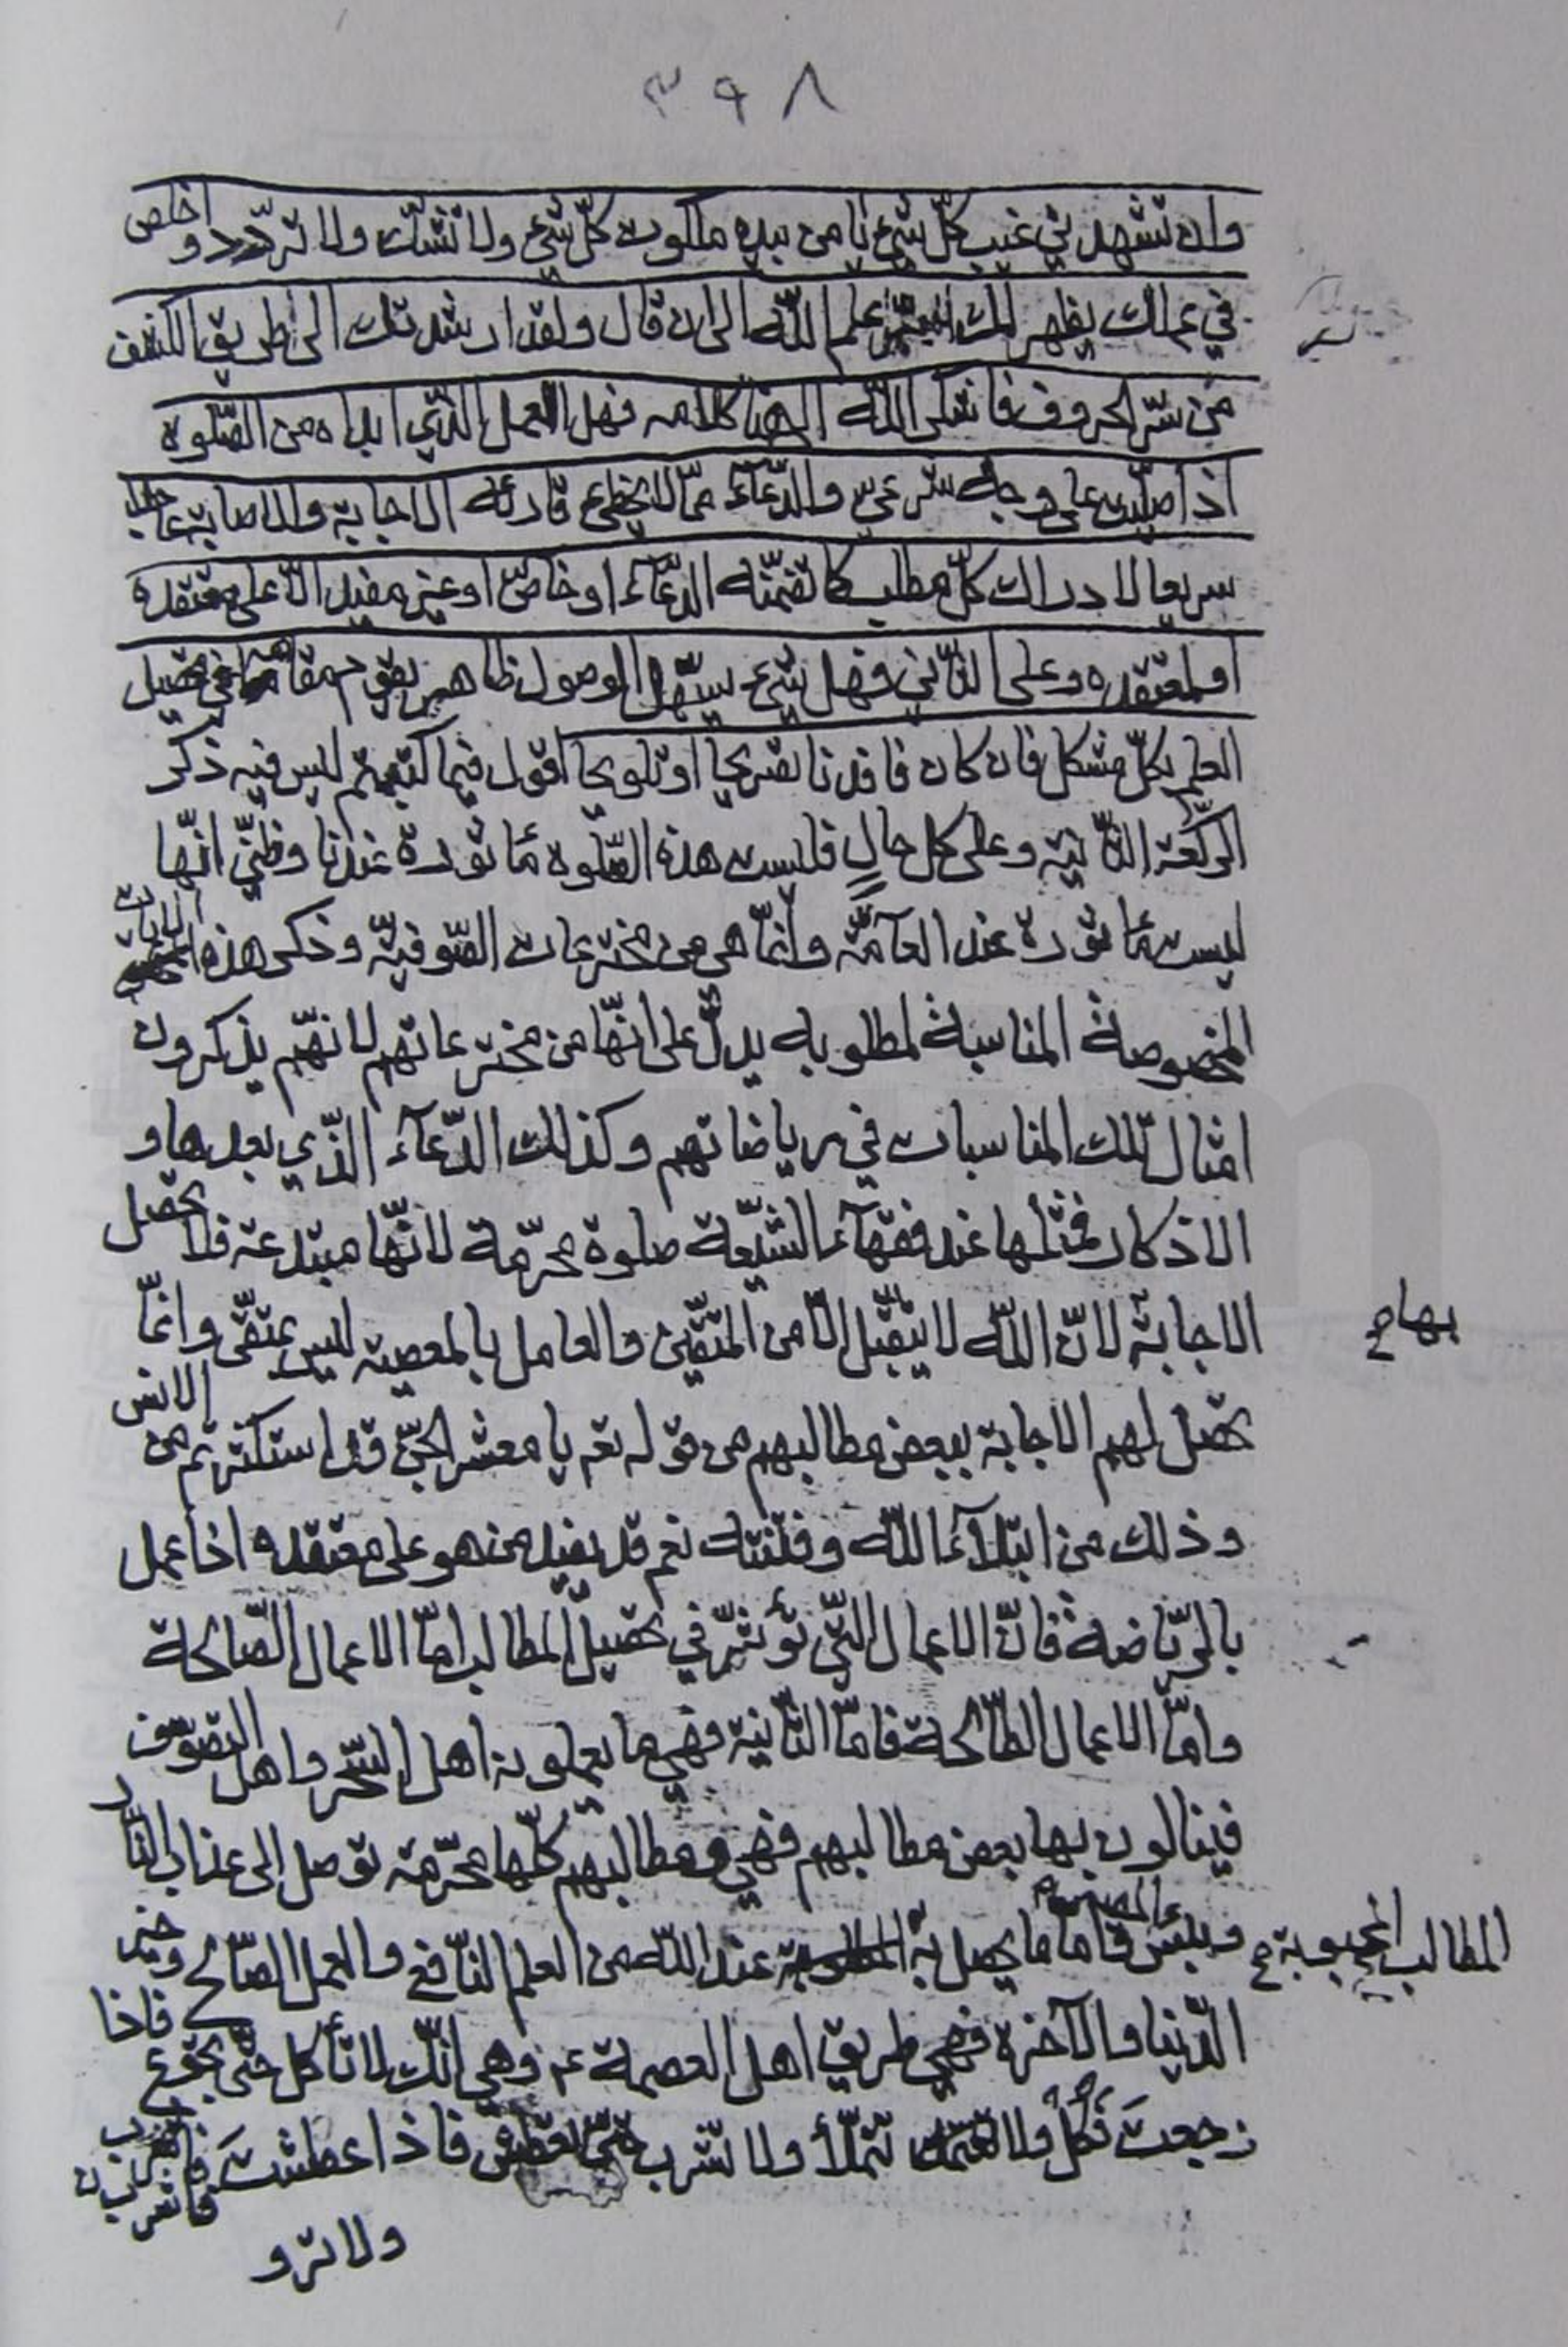 ٣٩٨
وان تشهد في غيب كلّ شيء نا من بيده ملكوت كلّ شيء ولا تشك ولا تردّد و اخلص
في عملك يظهر لك علم اللّه الى ان قال ولقد ارشدتك الى طريق الكشف
من سرّ الحروف فاشكر اللّه الى هنا كلامه فهل العمل الذّي ابداه من الصّلوة
اذا صلّيت على وجه شرعيّ والدّعآء ممّا لا يخطىء قارئه الاجابة والاصابة عاجلا
سريعا لادراك كلّ مطلب كما تضمّنه الدّعآء او خاصّ او غير مفيد الّا على معتقده
او لمعتقده وعلى الثّاني فهل شيء يسهّل الوصول ظاهر يقوم مقامه في تحصيل
العلم بكلّ مشكل فان كان فافدنا تصريحا او تلويحا اقول فيما كتبتم ليس فيه ذكر
الركّعة الثّانية وعلى كل حالٍ فليست هذه الصّلوة مأثورة عندنا وظنّي انّها
ليست مأثورة عند العآمّة وانّما هي من مخترعات الصّوفيّة وذكر هذه الايات
المخصوصة المناسبة لمطلوبه يدلّ على انّها من مخترعاتهم لانّهم يذكرون
امثال تلك المناسبات في رياضاتهم وكذلك الدّعآء الذّي بعدها و
الاذكار فمثلها عند فقهآء الشّيعة صلوة محرّمة لانّها مبتدعة فلا تحصل
بها ح
الاجابة لانّ اللّه لا يتقبّل الّا من المتّقين والعامل بالمعصية ليس بمتّقى وانّما
تحصل لهم الاجابة ببعض مطالبهم من قوله تعه يا معشر الجنّ قد استكثرتم من الانس
وذلك من ابتلآء اللّه وفتنته نعم قد يفيد من هو على معتقده اذا عمل
بالرّياضة فانّ الاعمال التّي تؤثّر في تحصيل المطالب امّا الاعمال الصّالحة
وامّا الاعمال الطّالحة فامّا الثّانية فهي ما يعملونه اهل السّحر واهل التصوّف
فينالون بها بعض مطالبهم فهي ومطالبهم كلّها محرّمة توصل الى عذاب النّار
وبئس المصير فامّا ما يحصل به المطالب المحبوبة ح عند اللّه من العلم النّافع والعمل الصّالح وخير
الدّنيا والآخرة فهي طريق اهل العصمة ع وهي انّك لا تأكل حتّى تجوع فاذا
جعت فكل ولا تتملّأ ولا تشرب حتّى تعطش فاذا عطشت فاشرب
ولا ترو